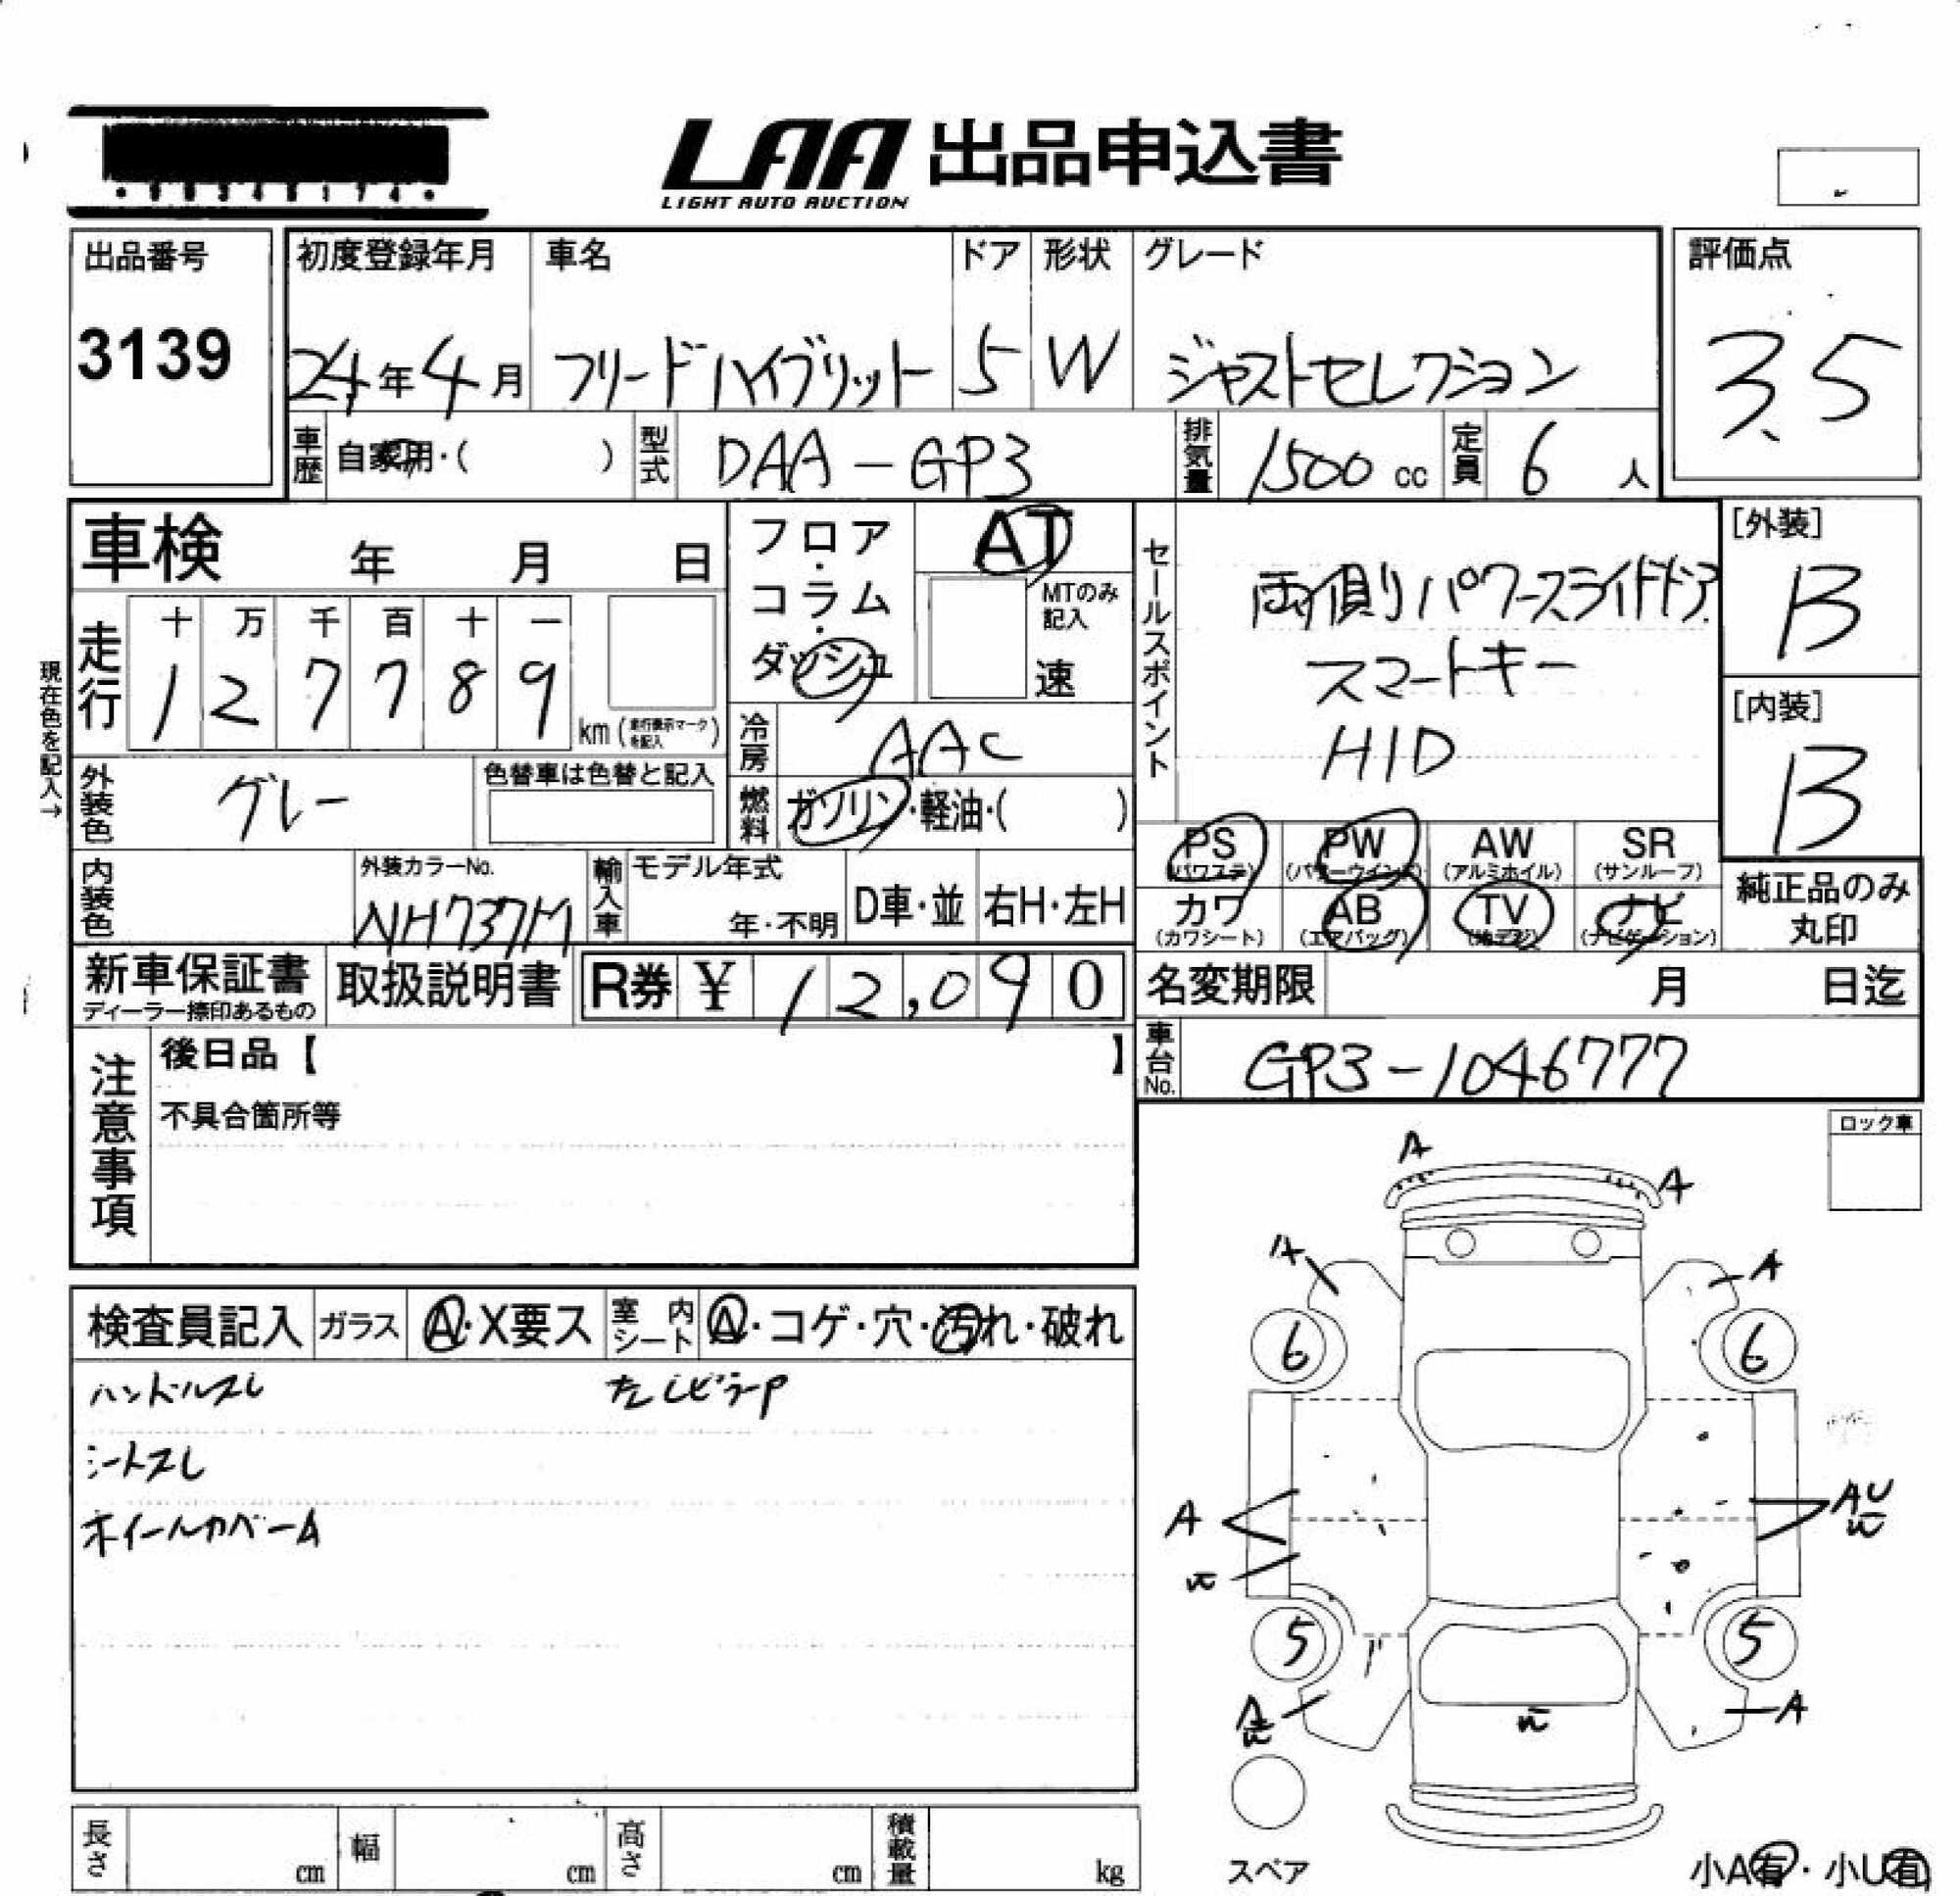 LAA 出品申込書
LIGHT AUTO AUCTION
出品番号
3139
初度登録年月
24年4月
車名
フリードハイブリット
ドア
5
形状
W
グレード
ジャストセレクション
評価点
3.5
車歴
自家用・( )
型式
DAA-GP3
排気量
1500 cc
定員
6人
車検 年 月 日
フロア・コラム・ダッシュ
AT
MTのみ記入
速
セールスポイント
両側パワースライドドア
スマートキー
HID
[外装]
B
[内装]
B
現在色を記入→
走行
十 万 千 百 十 一
1 2 7 7 8 9
km (走行表示マークを記入)
冷房
AAC
燃料
ガソリン・軽油・( )
外装色
グレー
色替車は色替と記入
PS (パワステ)
PW (パワーウインドウ)
AW (アルミホイル)
SR (サンルーフ)
カワ (カワシート)
AB (エアバッグ)
TV (地デジ)
ナビ (ナビゲーション)
純正品のみ丸印
内装色
外装カラーNo.
NH737M
輸入車
モデル年式
年・不明
D車・並
右H・左H
新車保証書
ディーラー捺印あるもの
取扱説明書
R券 ¥ 12,090
名変期限 月 日迄
車台No.
GP3-1046777
注意事項
後日品【 】
不具合箇所等
ロック車
検査員記入
ガラス
A・X要ス
室内シート
A・コゲ・穴・汚れ・破れ
ハンドルスレ
シートスレ
ホイールカバーA
A
A
A
A
6
6
A
AU
W
5
5
A
W
W
A
スペア
長さ cm
幅 cm
高さ cm
積載量 kg
小A有・小U有